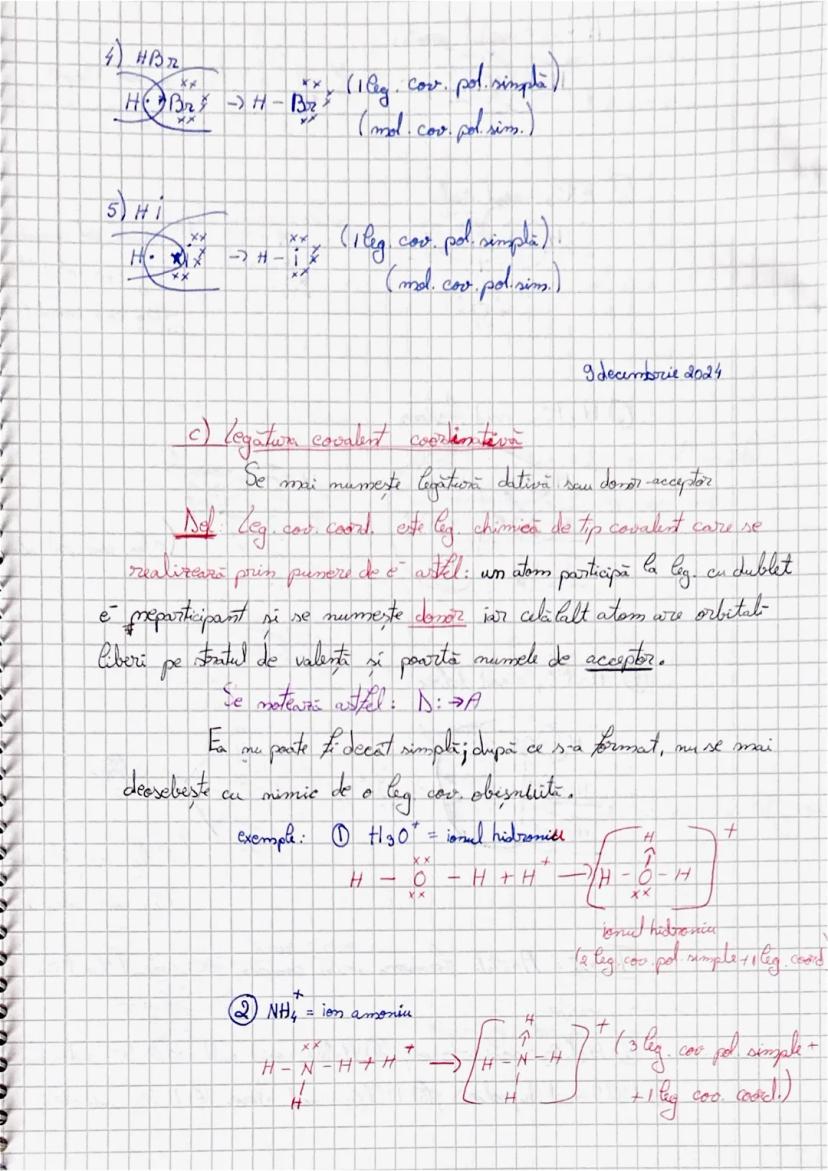 4) HBr
H · Br → H - Br (1 leg. cov. pol. simplă)
(mol. cov. pol. sim.)
5) Hi
H · x i → H - i (1 leg. cov. pol. simplă)
(mol. cov. pol. sim.)
9 decembrie 2024
c) Legătura covalent coordinativă
Se mai numește legătură dativă sau donor-acceptor
Def: Leg. cov. coord. este leg. chimică de tip covalent care se
realizează prin punere de e⁻ astfel: un atom participă la leg. cu dublet
e⁻ neparticipant și se numește donor iar celălalt atom are orbitali
liberi pe stratul de valență și poartă numele de acceptor.
Se notează astfel: D: → A
Ea nu poate fi decât simplă; după ce s-a format, nu se mai
deosebește cu nimic de o leg cov. obișnuită.
exemple: ① H3O⁺ = ionul hidroniu
H
H - O - H + H⁺ → [H - O - H]⁺
ionul hidroniu
(2 leg. cov. pol simple + 1 leg. coord
② NH₄⁺ = ion amoniu
H
H - N - H + H⁺ → [H - N - H]⁺ (3 leg. cov pol simple +
H H + 1 leg cov. coord.)